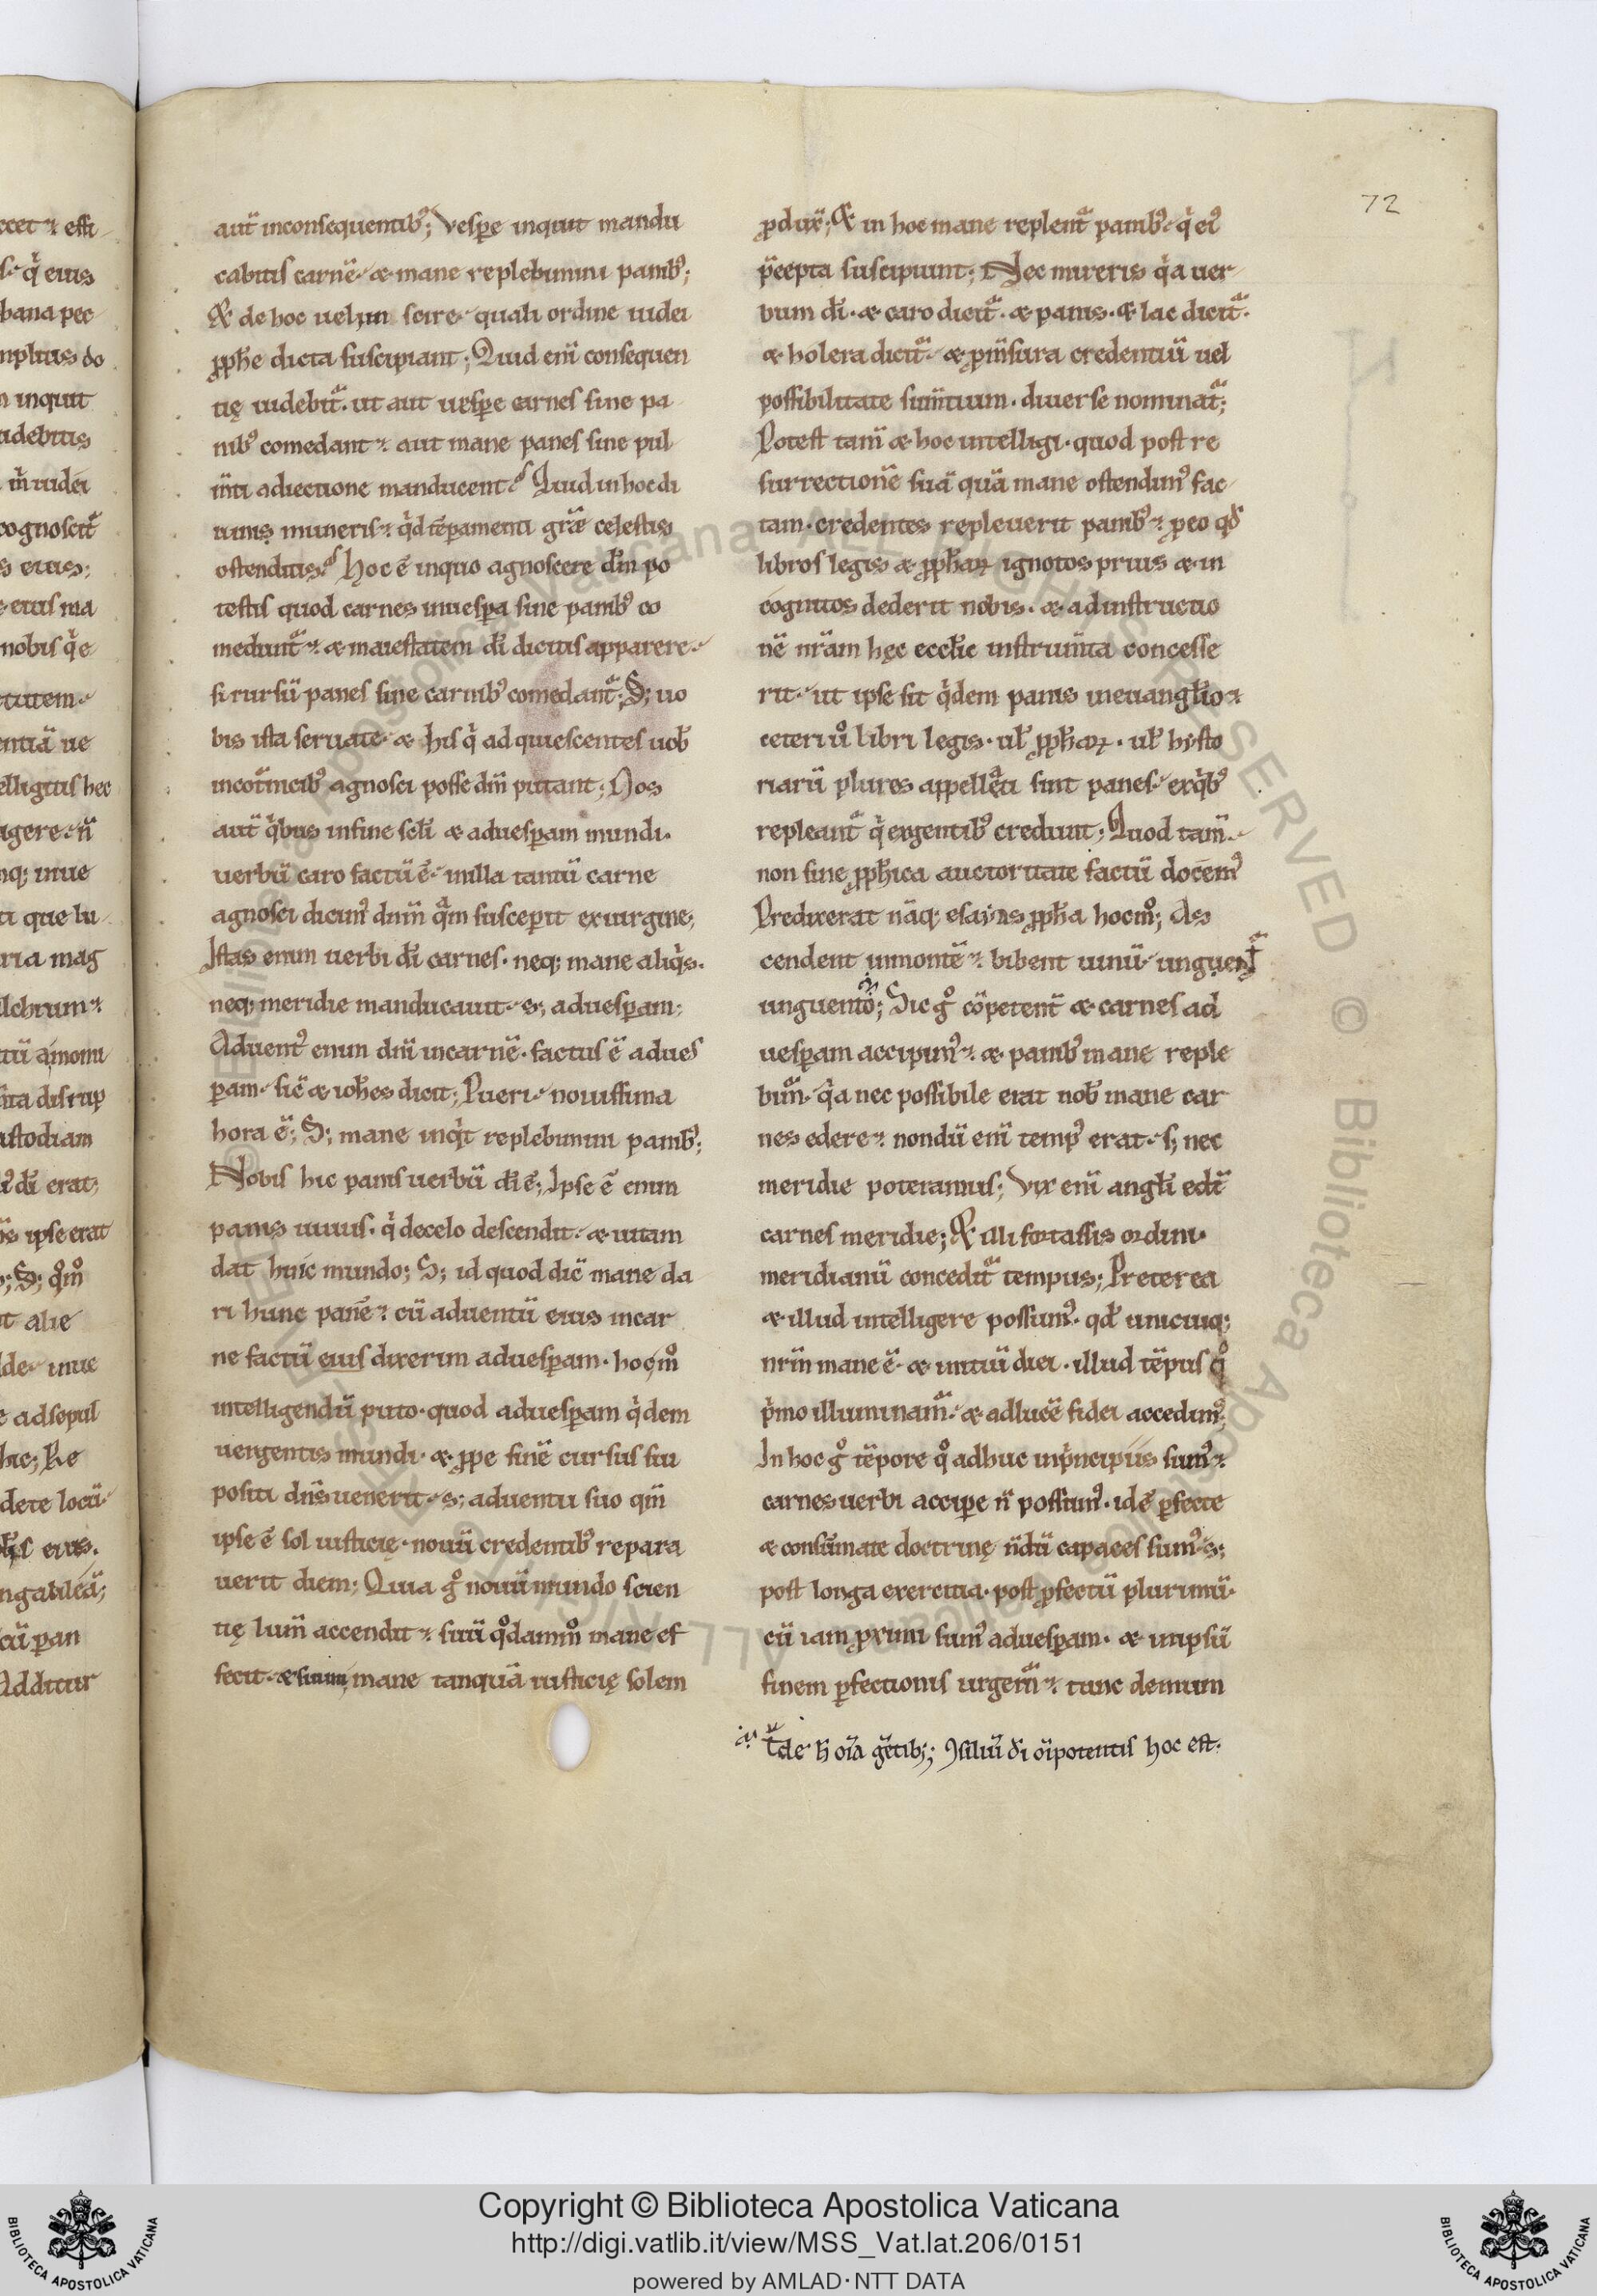 72
cet ⁊ effi
q̇ eius
bana pec
mplius do
inquit
uidebitis
m̄ iudei
cognoscit᷑
s eius;
eius ma
nobis q̇ e
tutem
entiā ue
elligitis hec
agere n̄
nq; inue
ti que lu
ria mag
lchrum
tū amomi
ita disrup
ustodiam
di erat;
ipse erat
S; qm̊
t alie
de inue
adsepul
hic; Re
dete locū
eius.
ngalileā;
cū pan
Additur
aut̄ inconsequentib᷒; Vespe inquit mandu
cabitis carnē æ mane replebimini panib᷒;
& de hoc uelim scire quali ordine iudei
ꝓphe dicta suscipiant; Quid eni᷑ consequen
tię uidebit᷑. ut aut uespe carnes sine pa
nib᷒ comedant. aut mane panes sine pul
m̄ti adiectione manducent? Quid in hoc di
uini muneris. q̇d tēpamenti grāe celestis
ostenditis? Hoc ē inquo agnoscere dm̄ po
testis quod carnes inuespa sine panib᷒ co
medunt᷑. æ maiestatem di dicitis apparere.
si rursū panes sine carnib᷒ comedant᷑; S; uo
bis ista seruate æ his q̇ adquiescentes uob̄
incot᷑nicib᷒ agnosci posse dm̄ putant; Nos
aut̄ q̇bus infine scl̄i æ aduesꝑam mundi.
uerbū caro factū ē. in illa tantū carne
agnosci dicim᷒ dnm̄ q̄m susceꝑit exuirgine;
Istas enim uerbi di carnes. neq; mane aliq̇s.
neq; meridie manducauit. s; aduesꝑam;
Aduent᷒ enim dni incarnē. factus ē adues
ꝑam. sic̄ æ ioh̄es dicit; Pueri nouissima
hora ē; S; mane inq̇t replebimini panib᷒;
Nobis hic panis uerbū di ē; Ipse ē enim
panis uiuus. q̇ decelo descendit. æ uitam
dat huic mundo; S; id quod dic̄ mane da
ri hunc panē. cū aduentū eius incar
ne factū eius dixerim aduesꝑam. hocm̊
intelligendū puto. quod aduesꝑam q̇dem
uergentis mundi. æ ꝓpe finē cursus sui
positi dn̄s uenerit. s; aduentu suo qm̄
ipse ē sol iusticię. nouū credentib᷒ repara
uerit diem; Quia g̊ nouū mundo scien
tię lum̄ accendit. suū q̊dammo mane ef
fecit. æ suum mane tanquā iusticię solem
ꝓdux̄; & in hoc mane replent᷑ panib᷒. q̇ ei᷒
p̄cepta suscipiunt; Nec mireris q̇a uer
bum di. æ caro dicit᷑. æ panis. & lac dicit᷑.
æ holera dicit᷑. æ ꝓm̄sura credentiū uel
possibilitate sum̄tium. diuerse nominat᷑;
Potest tam̄ æ hoc intelligi. quod post re
surrectionē suā quā mane ostendim᷒ fac
tam. credentes repleuerit panib᷒. ꝑ eo qd̄
libros legis æ ꝓph̄aꝝ ignotos prius æ in
cognitos dederit nobis. æ adinstructio
nē nr̄am hęc eccl̄ie instrum̄ta concesse
rit. ut ipse sit q̇dem panis ineuangl̄io
ceteri u̇ libri legis. ul̄ ꝓph̄aꝝ. ul̄ hẏsto
riarū plures appellati sint panes. exq̇b᷒
repleant᷑ q̇ exgentib᷒ credunt; Quod tam̄
non sine ꝓph̄ica auctoritate factū docem᷒
Predixerat nāq; esaẏas ꝓph̄a hocm̊; As
cendent inmontē. bibent uinū unguent᷑
unguento; Sic g̊ cōpetent̄ æ carnes ad
uesꝑam accipim᷒. æ panib᷒ mane reple
bim᷑. q̇a nec possibile erat nob̄ mane car
nes edere. nondū eni᷑ temp᷒ erat. s; nec
meridie poteramus; Vix eni᷑ angl̄i edt̄
carnes meridie; & illi fortassis ordini.
meridianū concedit᷑ tempus; Preterea
æ illud intelligere possum᷒. qd̄ unicuiq;
nr̄m mane ē. æ initiū diei. illud tēpus q̊
p̊mo illuminam᷑. æ adlucē fidei accedim᷒;
In hoc g̊ tēpore q̊ adhuc inp̊ncipiis sum᷒.
carnes uerbi accipe n̄ possum᷒. idē ꝑfecte
æ consūmate doctrinę n̄dū capaces sum᷒. s;
post longa exercitia. post ꝓfectū plurimū.
cū iam ꝓximi sum᷒ aduesꝑam. æ inipsū
finem ꝑfectionis urgem᷑. tunc demum
de h̄ oīa gētib;; Isiliu᷑ di oīpotentis hoc est.
Copyright © Biblioteca Apostolica Vaticana
http://digi.vatlib.it/view/MSS_Vat.lat.206/0151
powered by AMLAD·NTT DATA
BIBLIOTECA APOSTOLICA VATICANA
BIBLIOTECA APOSTOLICA VATICANA